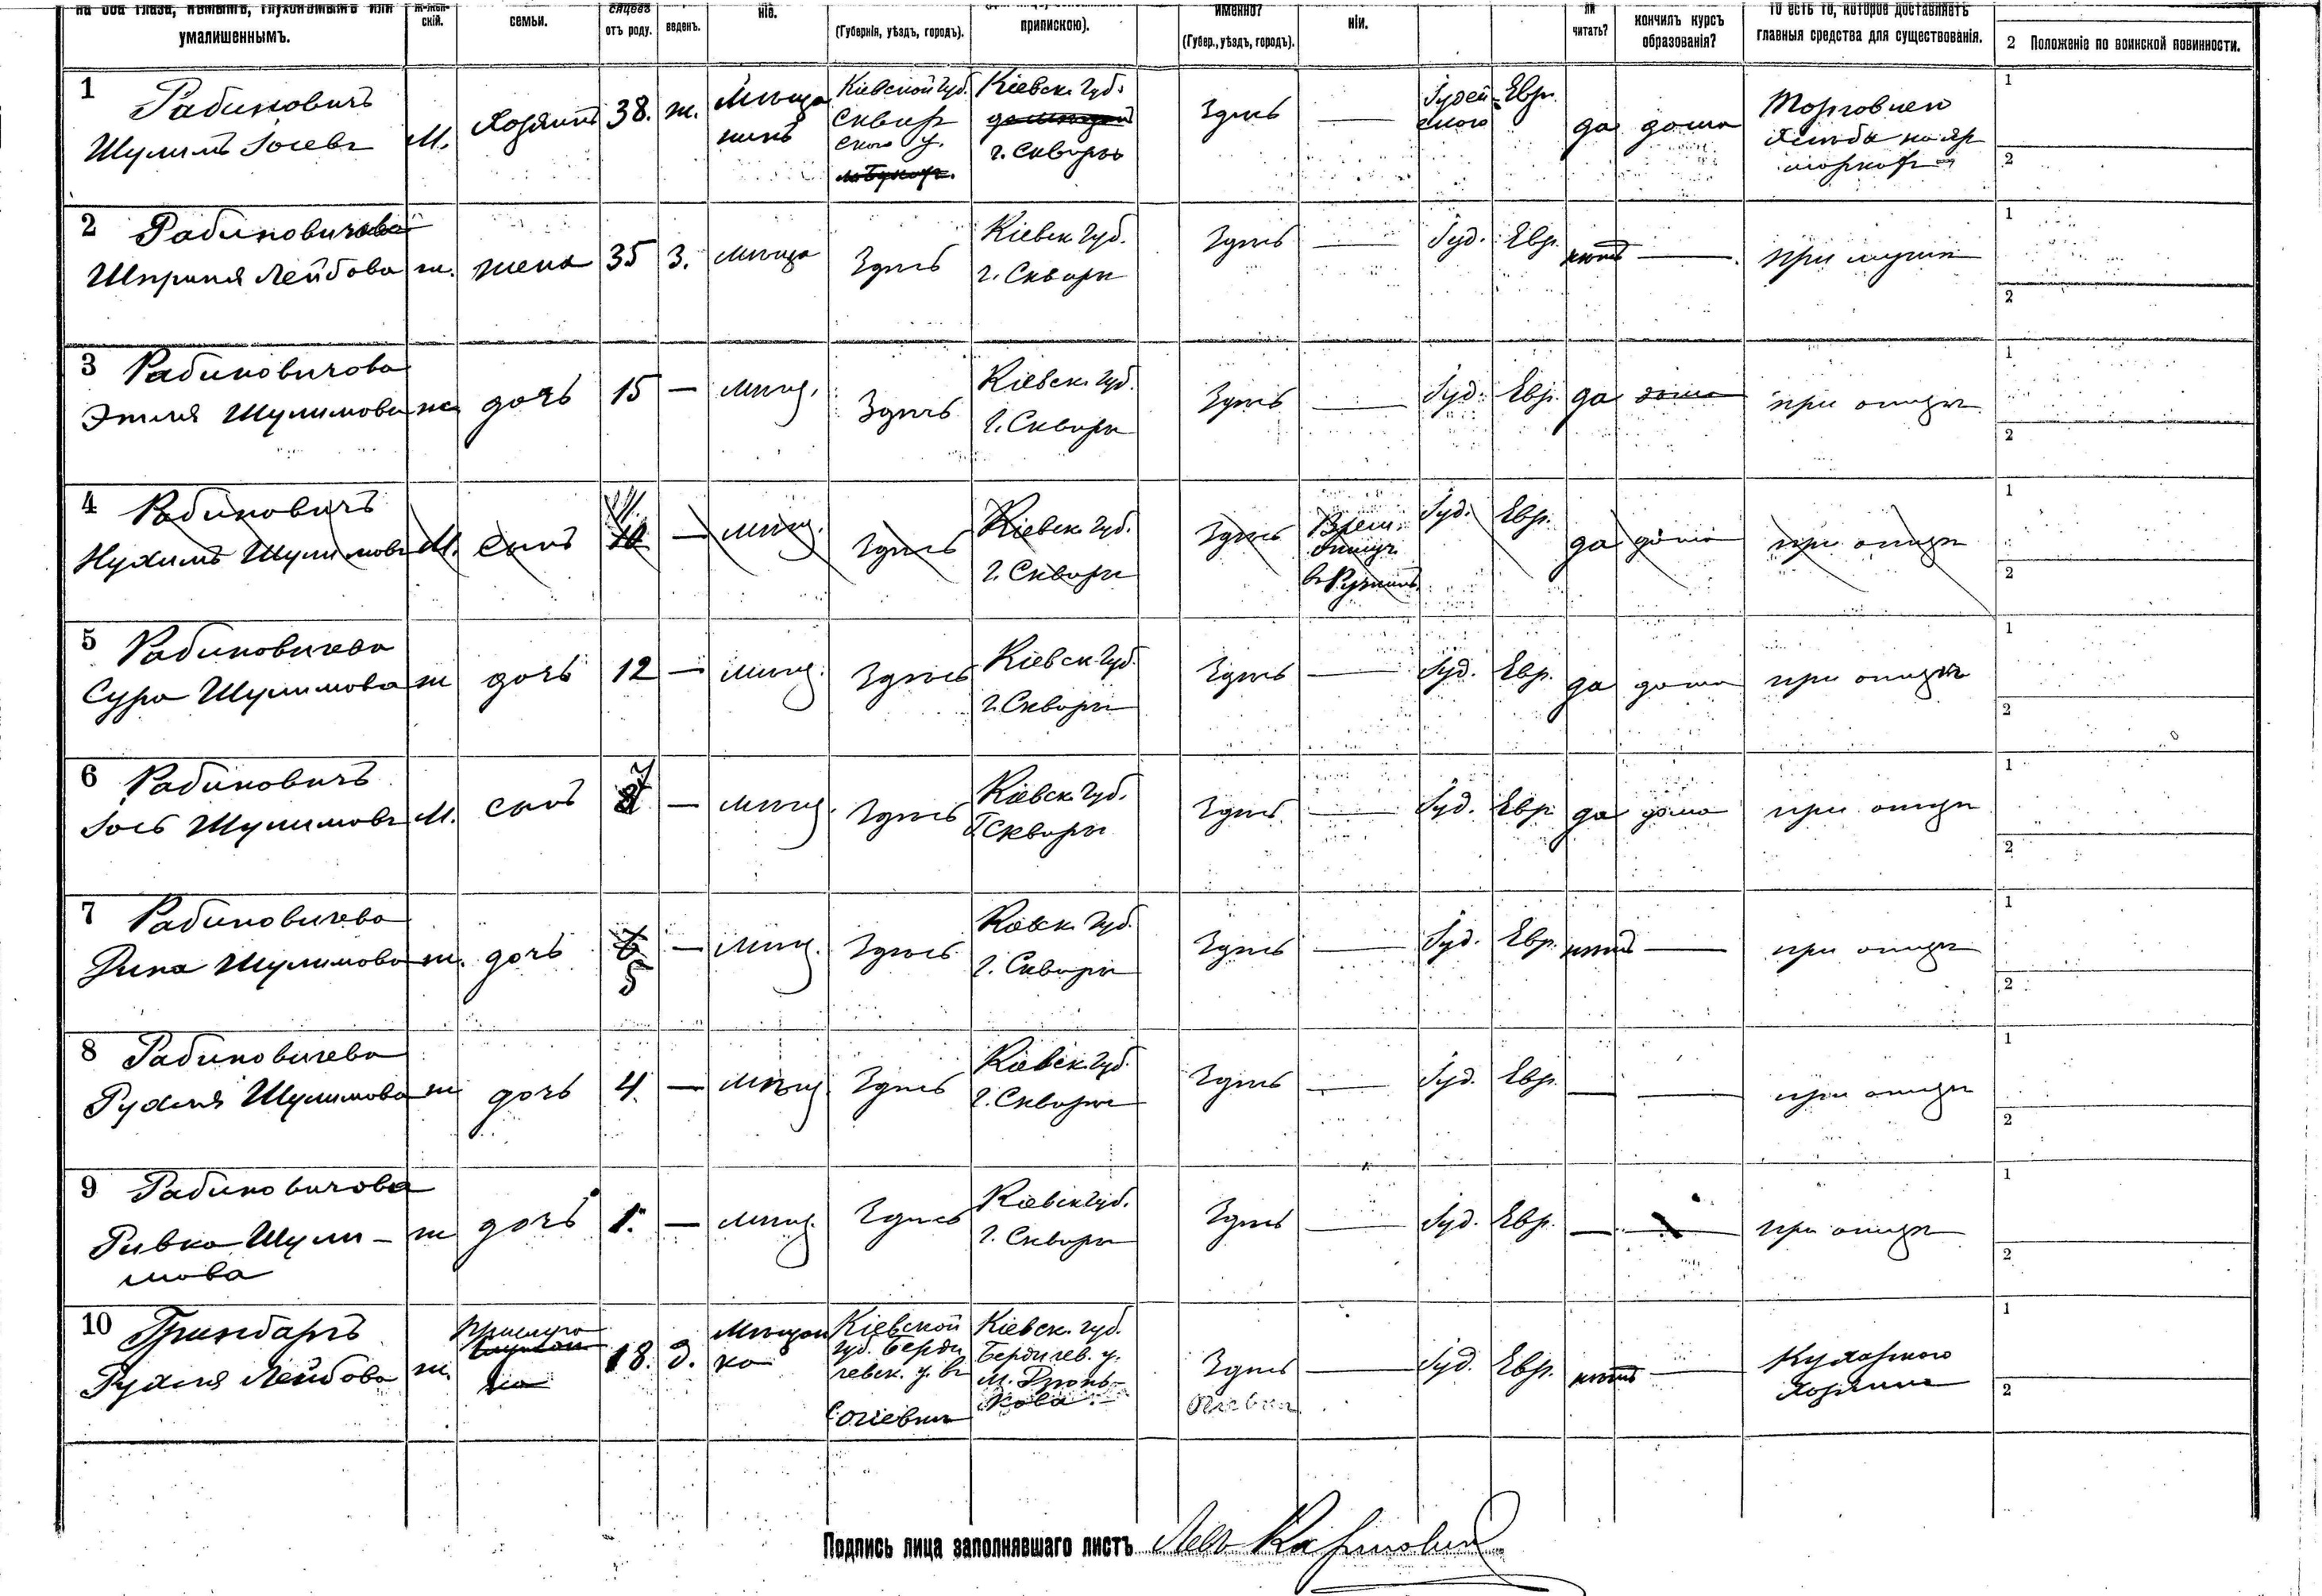 на оба глаза, нѣмымъ, глухонѣмымъ или
умалишеннымъ.
скій.
семьи.
отъ роду.
веденъ.
ніе.
(Губернія, уѣздъ, городъ).
припискою).
именно?
(Губер., уѣздъ, городъ).
ніи.
ли
читать?
кончилъ курсъ
образованія?
то есть то, которое доставляетъ
главныя средства для существованія.
2 Положеніе по воинской повинности.
1 Рабиновичъ
Шулимъ Іосевъ
М. Хозяинъ 38. ж. Мѣща
нинъ
Кіевской губ.
Сквир
ского у.
Кіевск. Губ.
г. Сквиры
Здѣсь — Іудей
ского
Евр. да дома
Торговлею
хлѣба на яр
маркахъ
1
2
2 Рабиновичева
Шприня Лейбова
ж. жена 35 З. мѣща Здѣсь
Кіевск. Губ.
г. Сквиры
Здѣсь — Іуд. Евр. нѣтъ — при мужѣ
1
2
3 Рабиновичова
Этля Шулимова
ж. дочь 15 — мѣщ. Здѣсь
Кіевск. губ.
г. Сквиры
Здѣсь — Іуд. Евр. да дома при отцѣ
1
2
4 Рабиновичъ
Нухимъ Шулимовъ
М. сынъ — мѣщ. Здѣсь
Кіевск. Губ.
г. Сквиры
Здѣсь
Врем.
отлуч.
въ Ружинъ
Іуд. Евр. да дома при отцѣ
1
2
5 Рабиновичева
Сура Шулимова
ж дочь 12 — мѣщ. Здѣсь
Кіевск. Губ.
г. Сквиры
Здѣсь — Іуд. Евр. да дома при отцѣ
1
2
6 Рабиновичъ
Іось Шулимовъ
М. сынъ — мѣщ. Здѣсь
Кіевск. Губ.
Г Сквиры
Здѣсь — Іуд. Евр да дома при отцѣ
1
2
7 Рабиновичева
Дина Шулимова
ж. дочь 6
5
— мѣщ. Здѣсь
Кіевск. Губ.
г. Сквиры
Здѣсь — Іуд. Евр. нѣтъ — при отцѣ
1
2
8 Рабиновичева
Рухля Шулимова
ж дочь 4. — мѣщ. Здѣсь
Кіевск. Губ.
г. Сквиры
Здѣсь — Іуд. Евр. — — при отцѣ
1
2
9 Рабиновичова
Ривка Шули-
мова
ж дочь 1. — мѣщ. Здѣсь
Кіевск губ.
г. Сквиры
Здѣсь — Іуд. Евр. — — при отцѣ
1
2
10 Гринбаргъ
Рухля Лейбова
ж. Прислуга
18. д. Мѣщан
ка
Кіевской
губ. Берди
чевск. у. въ
Кіевск. губ.
Бердичев. у.
м.
Здѣсь — Іуд. Евр. нѣтъ —
Кухаркою
хозяина
1
2
Подпись лица заполнявшаго листъ